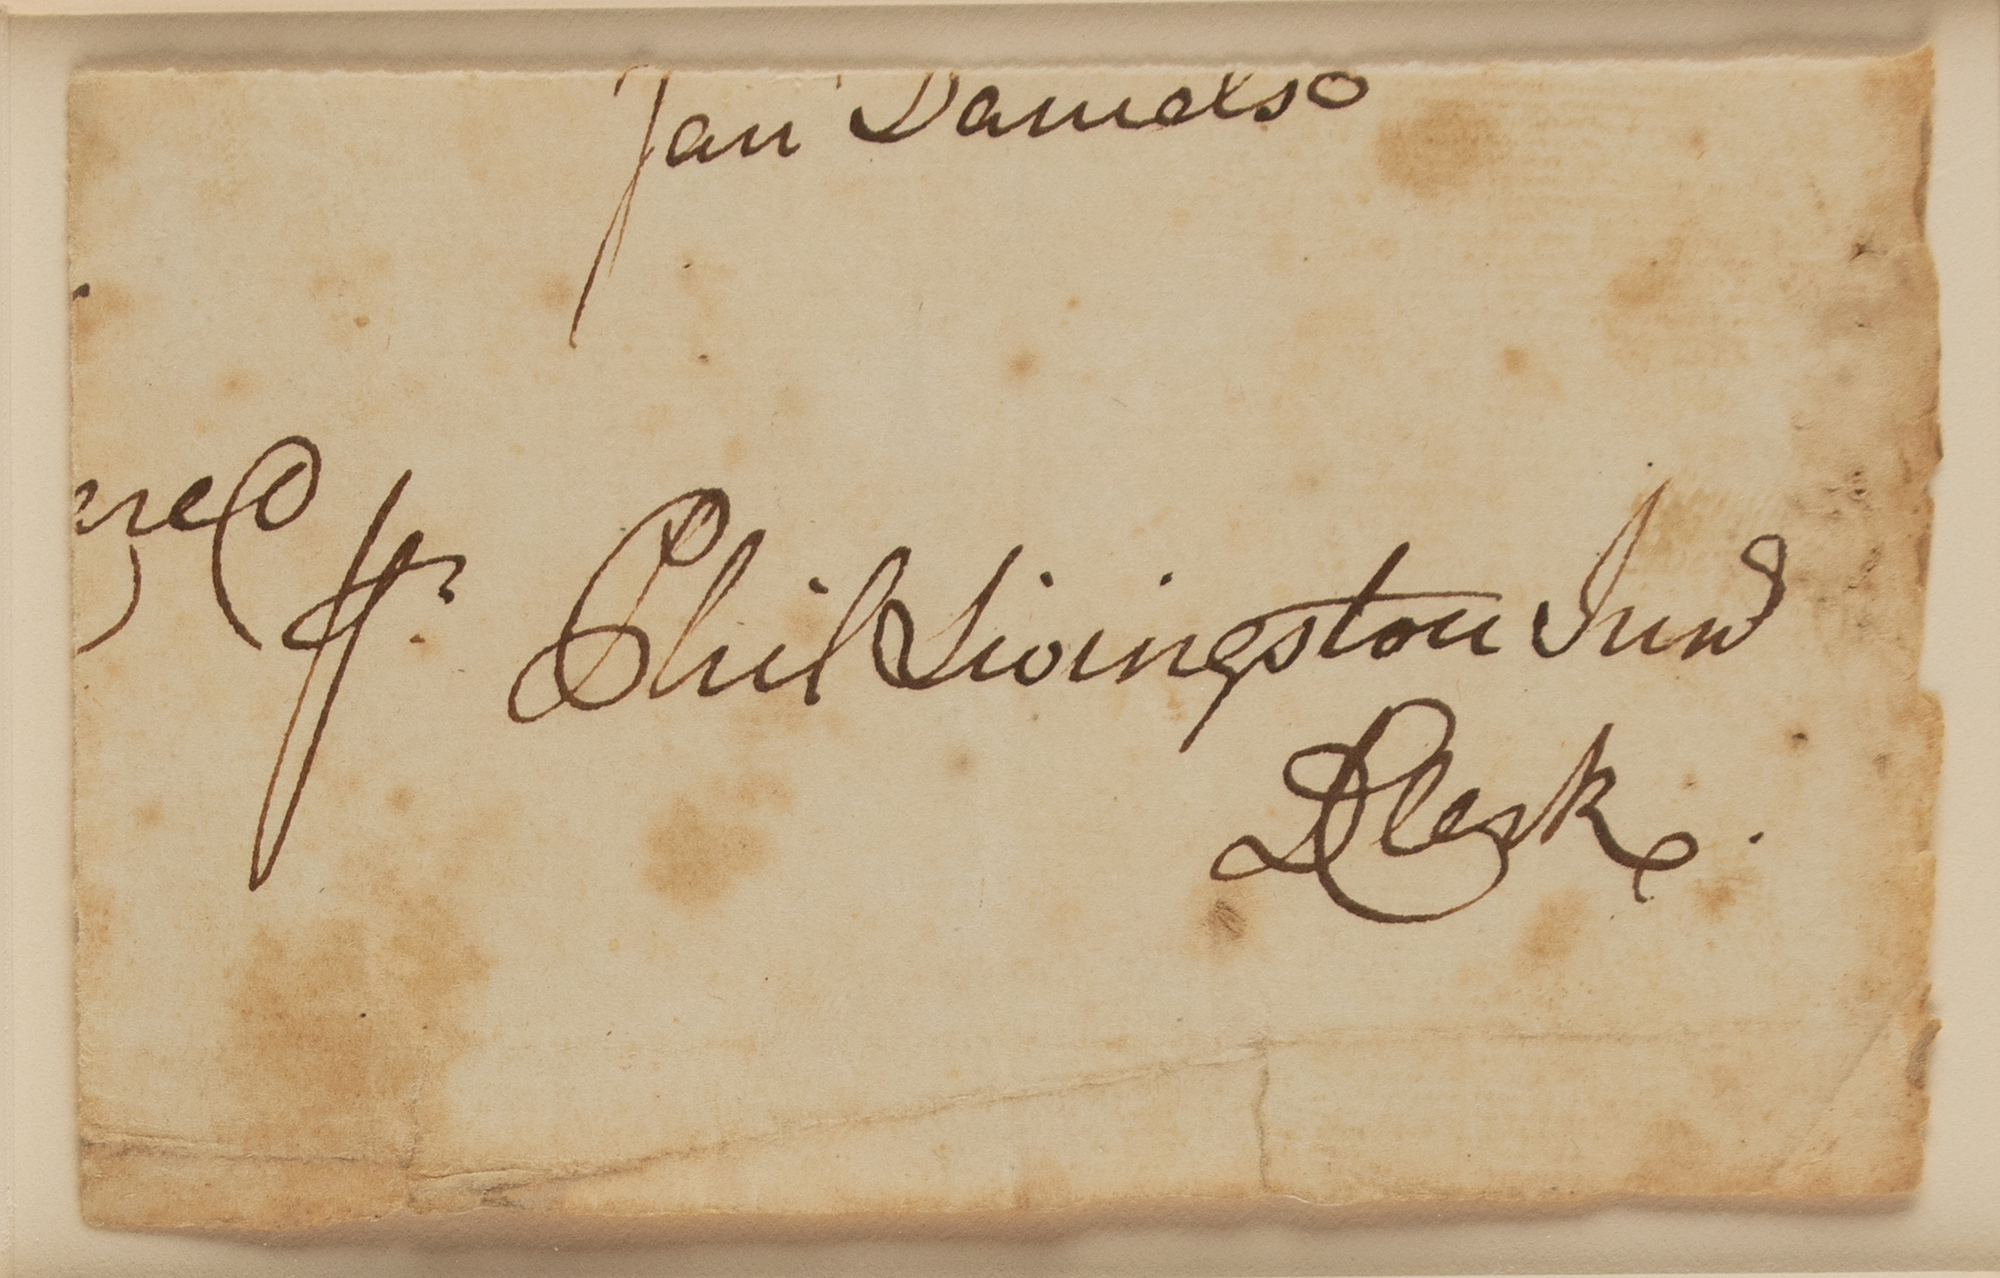 Jan Danielso
Phil Livingston Junr
DClerk.